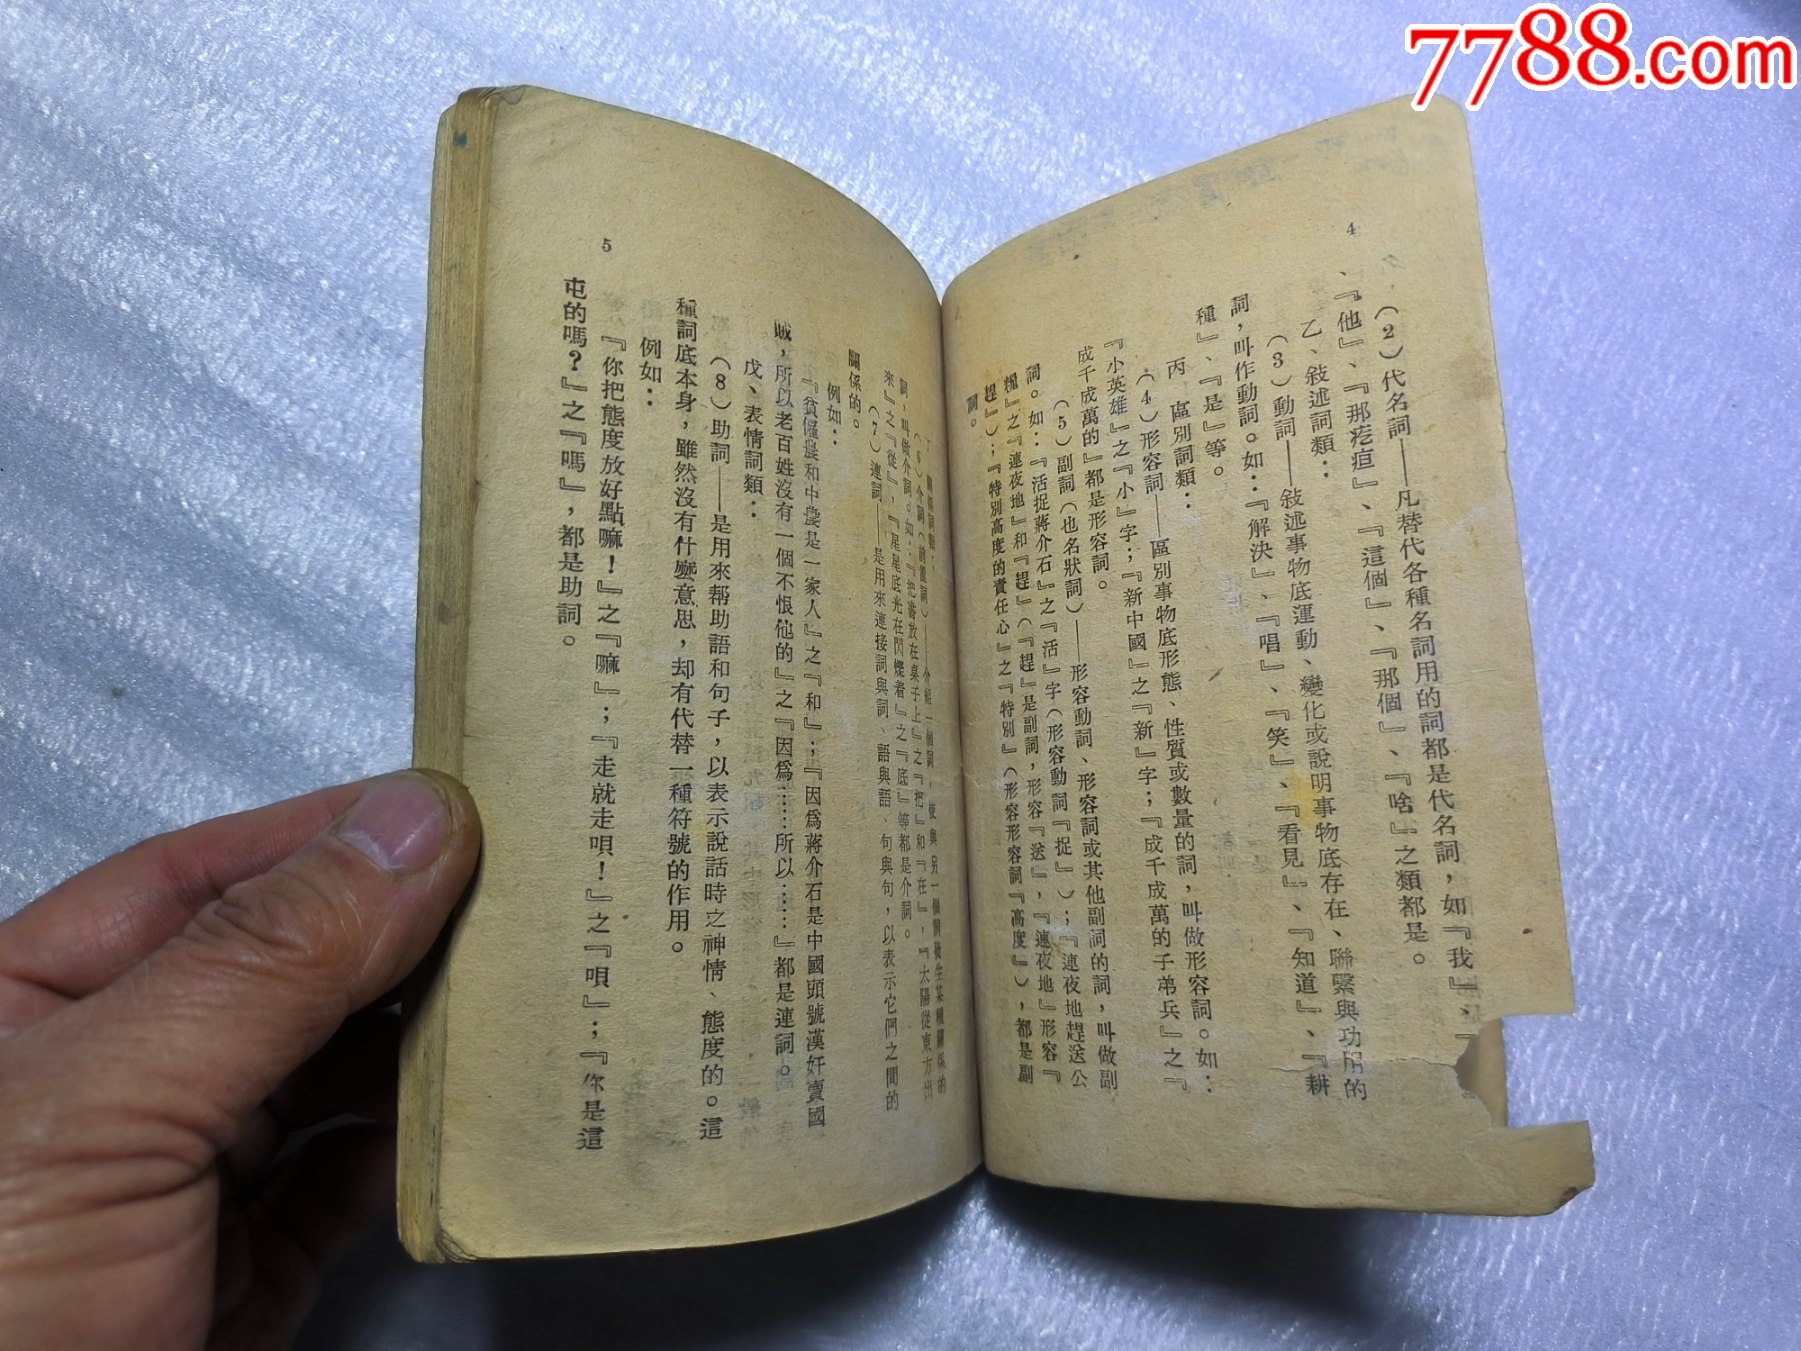 7788.com
4
(2)代名詞——凡替代各種名詞用的詞都是代名詞，如『我』、『
、『他』、『那疙疸』、『這個』、『那個』、『啥』之類都是。
乙、敍述詞類：
(3)動詞——敍述事物底運動、變化或說明事物底存在、聯繫與功用的
詞，叫作動詞。如：『解決』、『唱』、『笑』、『看見』、『知道』、『耕
種』、『是』等。
丙、區別詞類：
(4)形容詞——區別事物底形態、性質或數量的詞，叫做形容詞。如：
『小英雄』之『小』字；『新中國』之『新』字；『成千成萬的子弟兵』之『
成千成萬的』都是形容詞。
(5)副詞(也名狀詞)——形容動詞、形容詞或其他副詞的詞，叫做副
詞。如：『活捉蔣介石』之『活』字(形容動詞『捉』)；『連夜地趕送公
糧』之『連夜地』和『趕』(『趕』是副詞，形容『送』，『連夜地』形容『
趕』)；『特別高度的責任心』之『特別』(形容形容詞『高度』)，都是副
詞。
丁、關係詞類：
(6)介詞(前置詞)——介紹一個詞，使與另一個詞發生某種關係的
詞，叫做介詞。如：『把書放在桌子上』之『把』和『在』，『太陽從東方出
來』之『從』，『星星底光在閃爍着』之『底』等都是介詞。
(7)連詞——是用來連接詞與詞、語與語、句與句，以表示它們之間的
關係的。
例如：
『貧僱農和中農是一家人』之『和』；『因爲蔣介石是中國頭號漢奸賣國
賊，所以老百姓沒有一個不恨他的』之『因爲……所以……』都是連詞。
戊、表情詞類：
(8)助詞——是用來帮助語和句子，以表示說話時之神情、態度的。這
種詞底本身，雖然沒有什麽意思，却有代替一種符號的作用。
例如：
『你把態度放好點嘛！』之『嘛』；『走就走唄！』之『唄』；『你是這
屯的嗎？』之『嗎』，都是助詞。
5